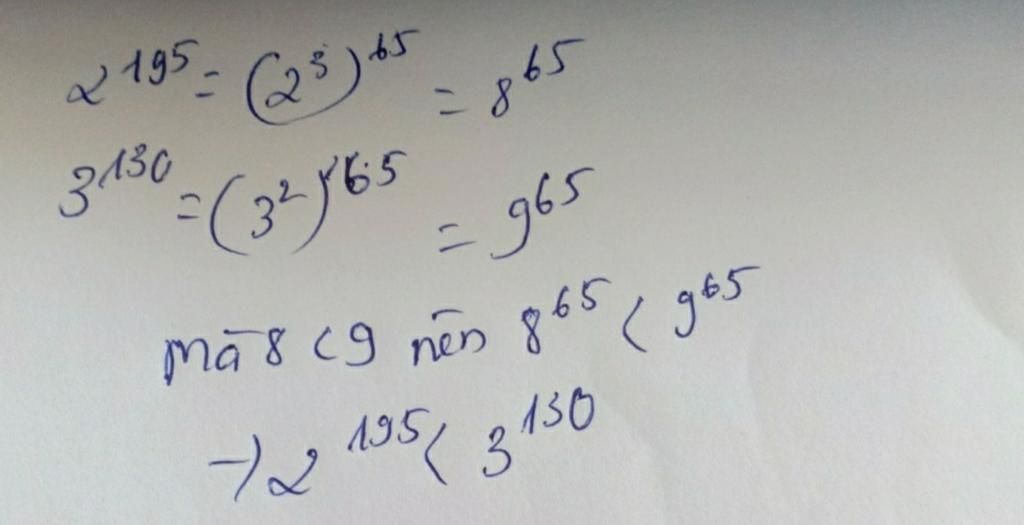 2^195 = (2^3)^65 = 8^65
3^130 = (3^2)^65 = 9^65
mà 8 < 9 nên 8^65 < 9^65
→ 2^195 < 3^130